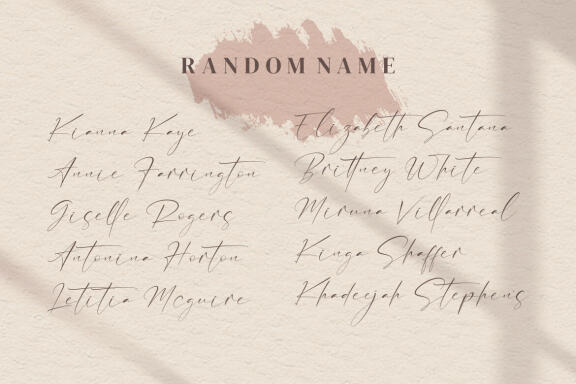 RANDOM NAME
Kianna Kaye
Annie Farrington
Giselle Rogers
Antonina Horton
Letitia Mcguire
Elizabeth Santana
Brittney White
Miruna Villarreal
Kinga Shaffer
Khadeejah Stephens